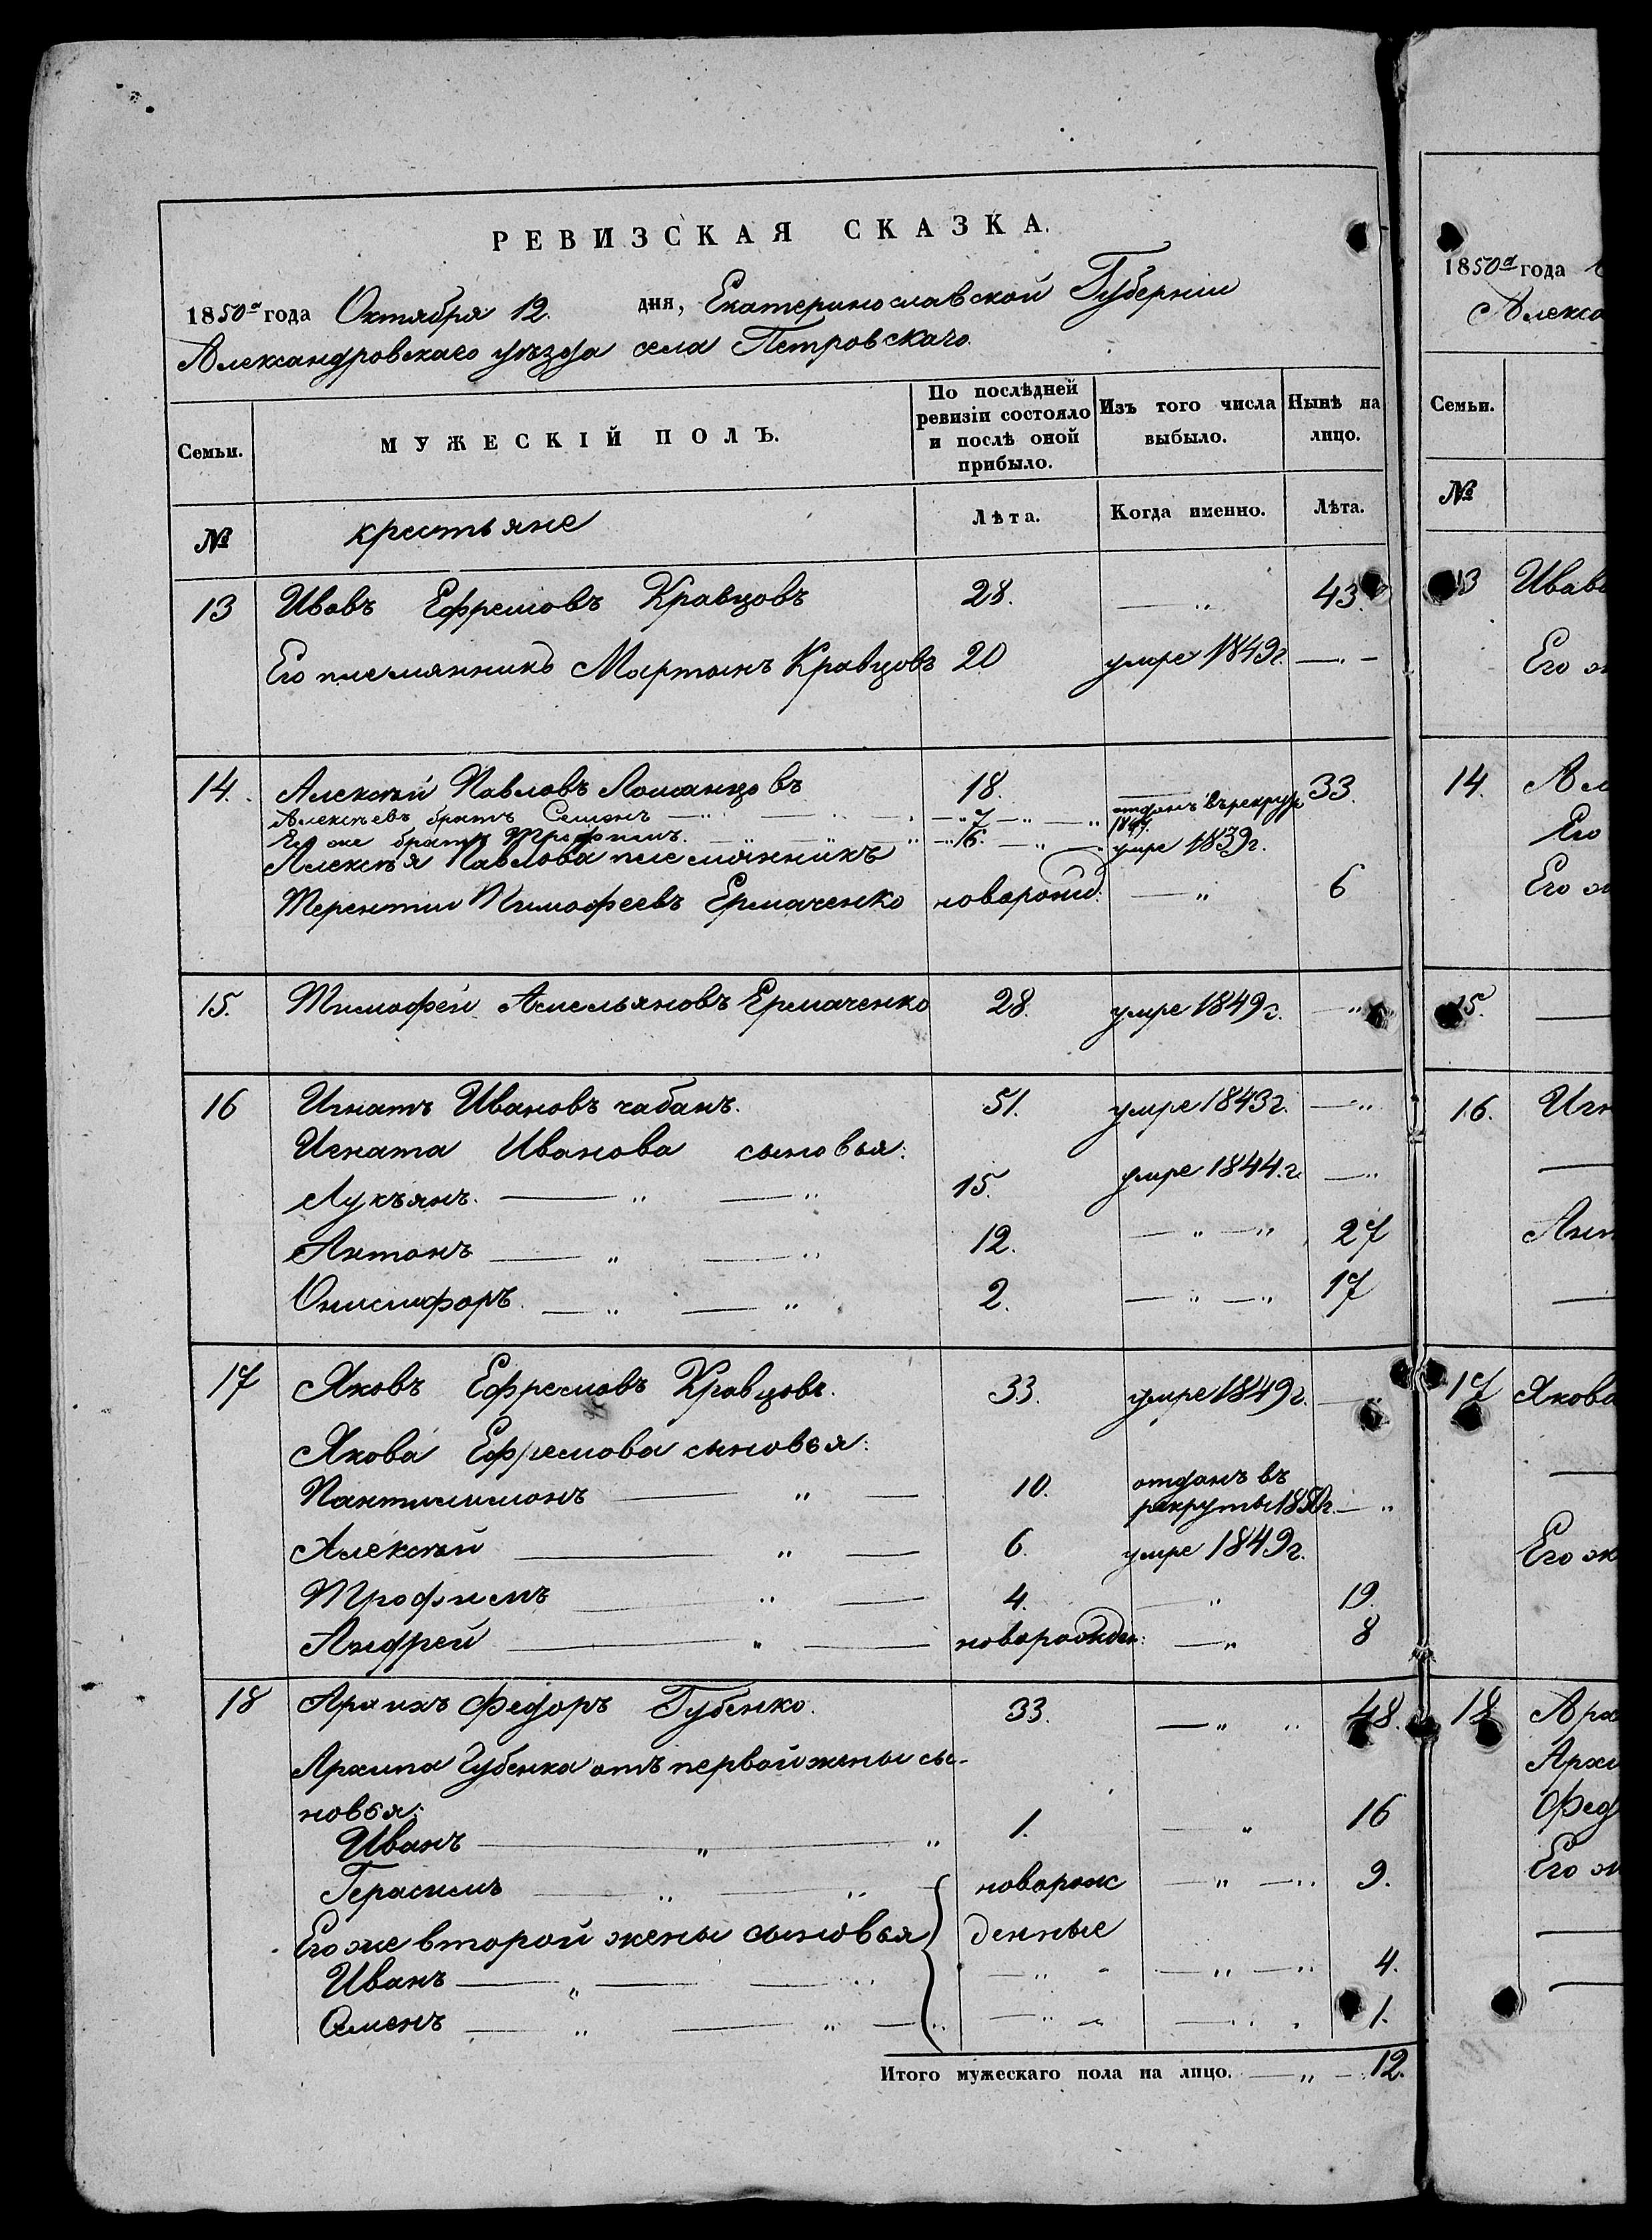 РЕВИЗСКАЯ СКАЗКА.
1850а года Октября 12. дня, Екатеринославской Губернiи
Александровскаго уѣзда села Петровскаго
Семьи. МУЖЕСКIЙ ПОЛЪ. По послѣдней ревизiи состояло и послѣ оной прибыло. Изъ того числа выбыло. Нынѣ на лицо.
№ крестьяне Лѣта. Когда именно. Лѣта.
13 Ивовъ Ефремовъ Кравцовъ 28. —„ 43.
Его племянникъ Мартынъ Кравцовъ 20 умре 1849г. —„—
14. Алексѣй Павловъ Ломанцовъ 18. — 33.
Алексѣевъ братъ Семенъ —„— 7 —„— отданъ въ рекруты
Его же братъ Трофимъ. —„— 16. —„— умре 1839г.
Алексѣя Павлова племянникъ
Терентiй Тимофеевъ Ермаченко новорожд. —„ 6
15. Тимофей Амельяновъ Ермаченко 28. умре 1849г. —„
16 Игнатъ Ивановъ чабанъ. 51. умре 1843г. —„
Игната Иванова сыновья:
Лукъянъ. —„ —„ 15. умре 1844.г. —„
Антонъ —„ —„ 12. —„—„ 27
Онисифоръ. —„ —„ 2. —„—„ 17
17 Яковъ Ефремовъ Кравцовъ. 33. умре 1849г. —
Якова Ефремова сыновья:
Пантилимонъ —„— 10. отданъ въ
рекруты 1850г. —„
Алексѣй —„— 6. умре 1849г.
Трофимъ —„— 4. —„ 19.
Андрей —„— новорожден: —„ 8
18 Архипъ Федоръ Губенко. 33. —„ „ 48.
Архипа Губенка отъ первой жены сы-
новья:
Иванъ —„—„ 1. —„ 16
Герасимъ —„ —„ новорож —„—„ 9.
Его же второй жены сыновья денные
Иванъ —„— —„ —„ —„—„ 4.
Семенъ —„ —„—„ —„ —„ 1.
Итого мужескаго пола на лицо. —„— 12.
1850а года
Алекса
Семьи.
№
13 Ивова
Его
14. Ал
Его
Его
15. —
16. Игн
—
Ант
—
17 Якова
—
Его
18 Арх
Архи
Фед
Его
—
—